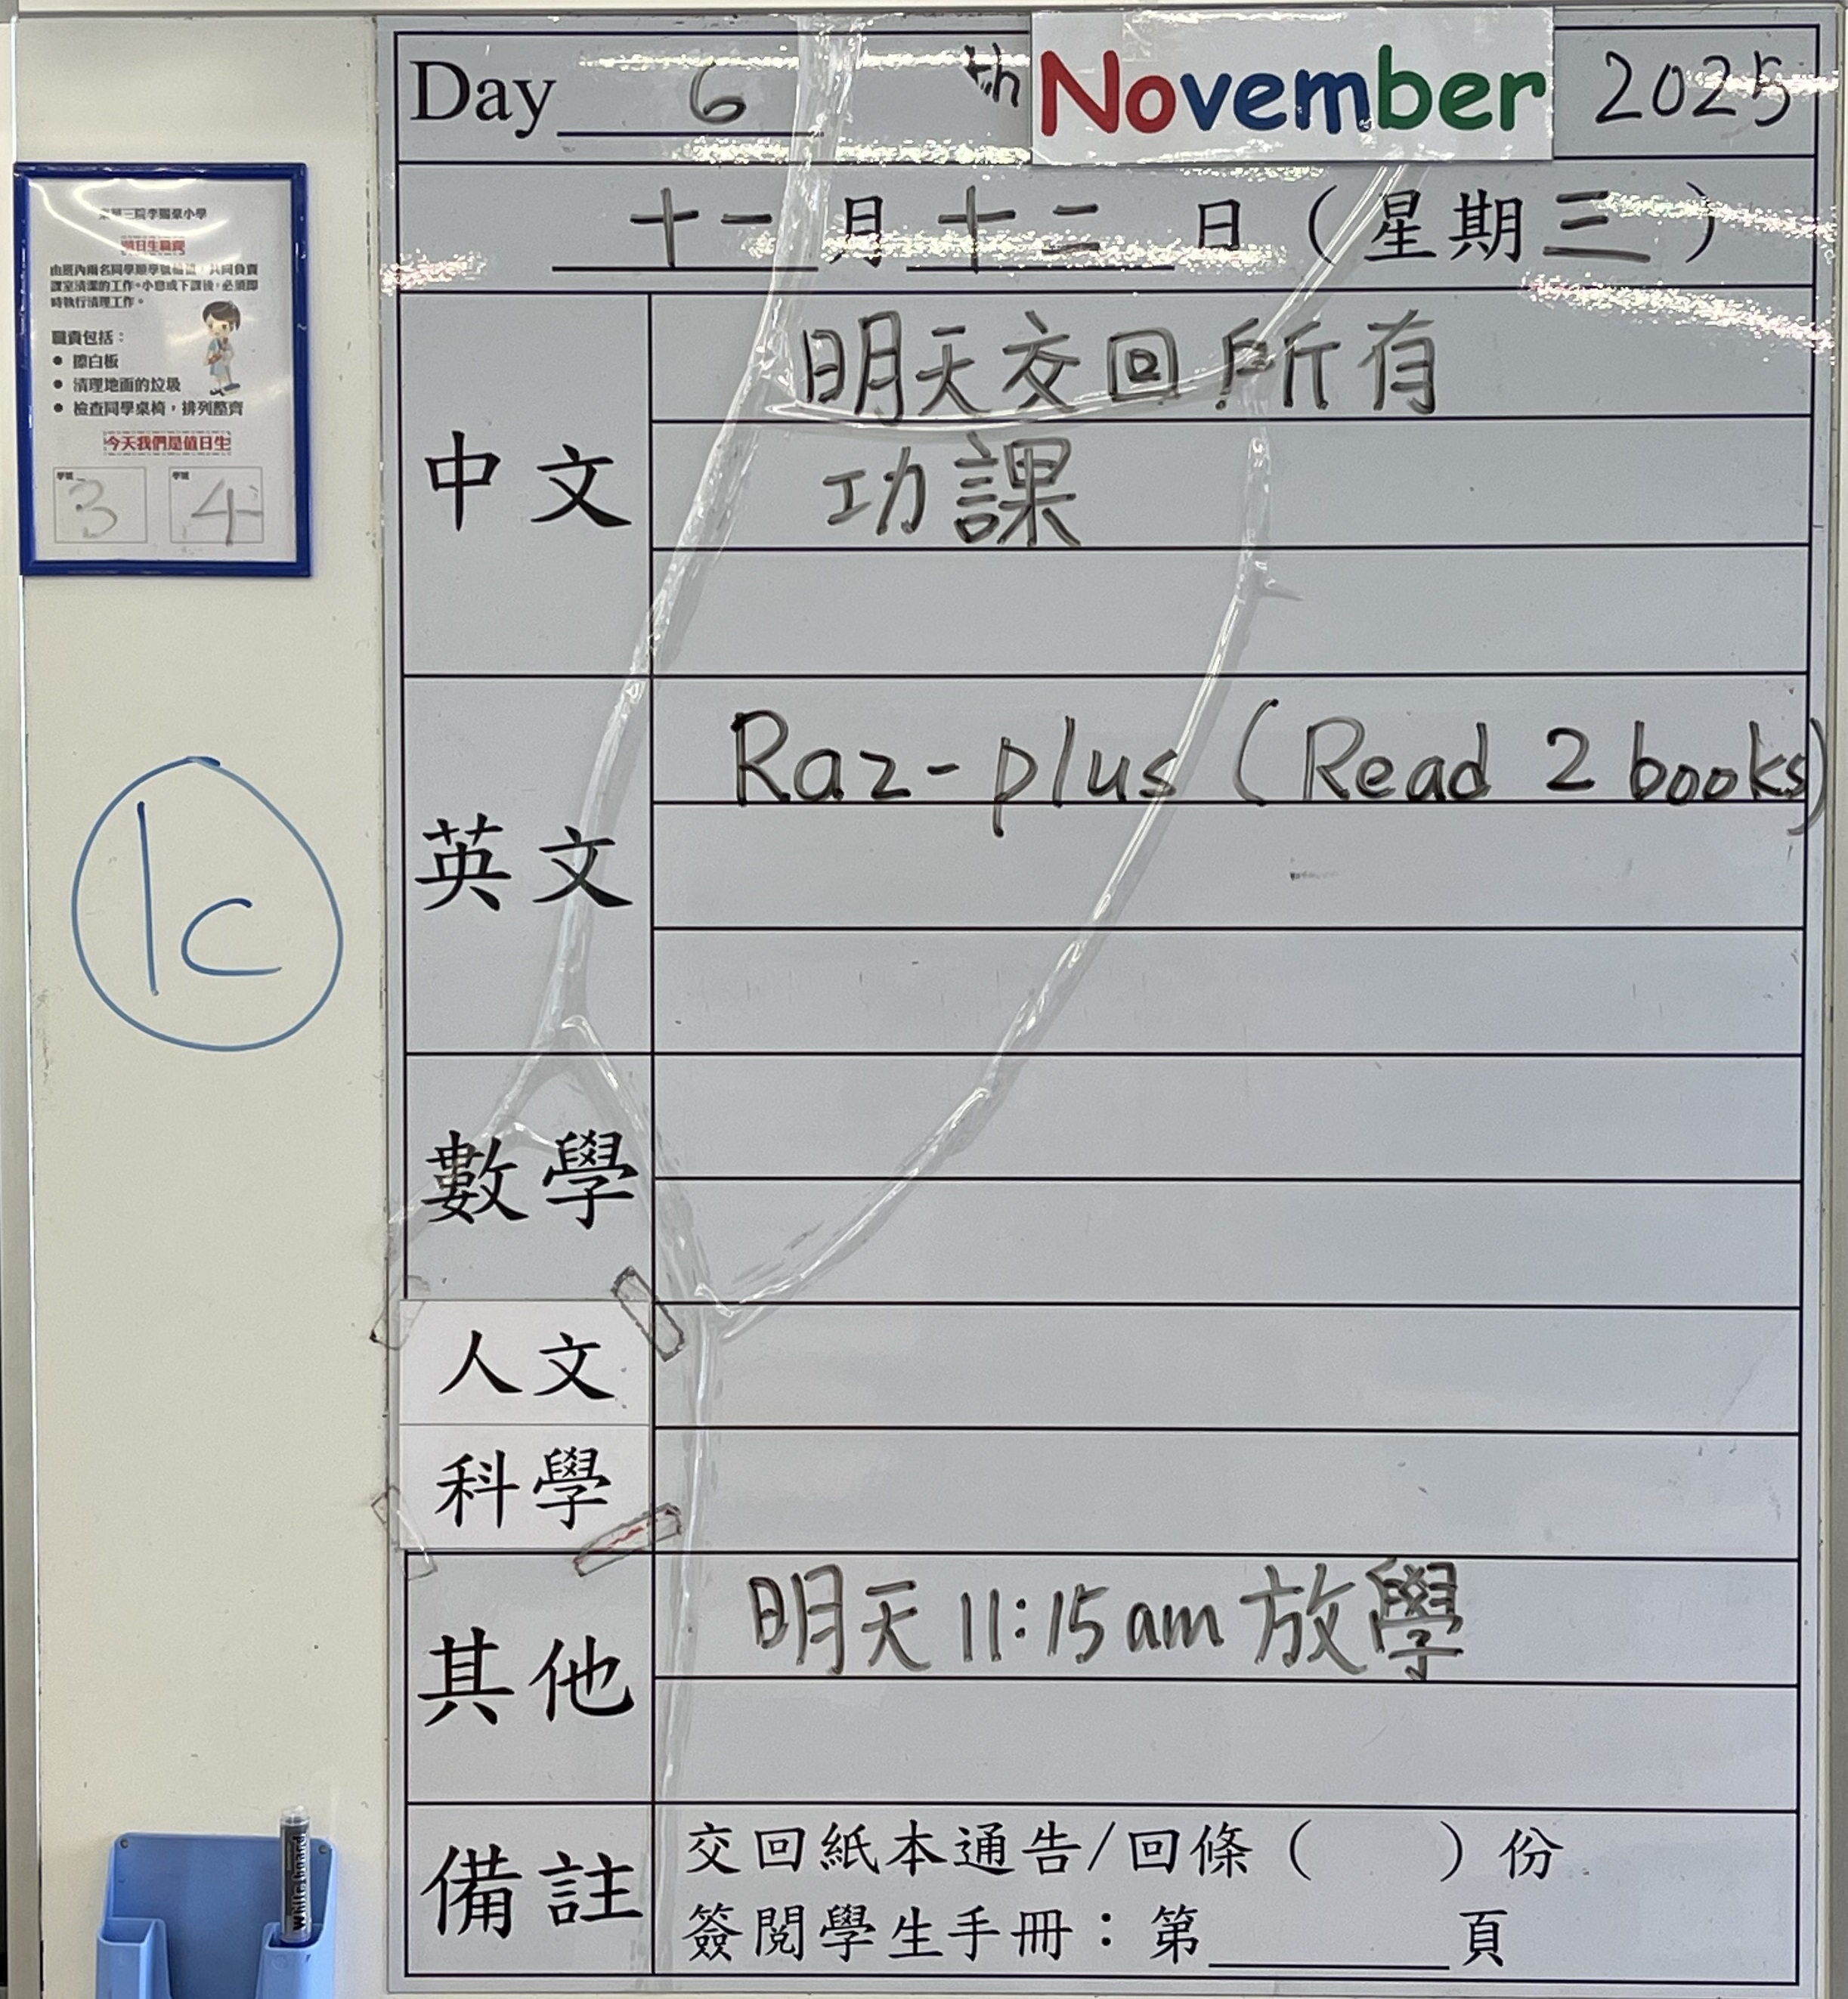 Day 6 th November 2025
十一月十二日(星期三)
中文
明天交回所有
功課
英文
Raz-plus (Read 2 books)
數學
人文
科學
其他
明天11:15am放學
備註
交回紙本通告/回條( )份
簽閱學生手冊:第______頁
值日生職責
由班內兩名同學順學號輪值,共同負責
課室清潔的工作。小息或下課後,必須即
時執行清理工作。
職責包括:
● 擦白板
● 清理地面的垃圾
● 檢查同學桌椅,排列整齊
今天我們是值日生
學號 學號
3 4
1c
Whiteboard